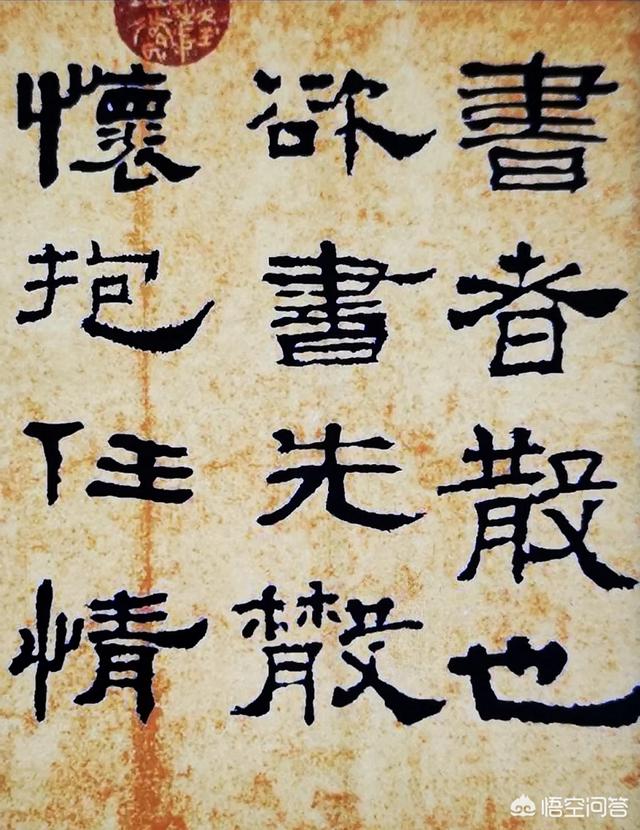 書者散也
欲書先散
懷抱任情
悟空问答